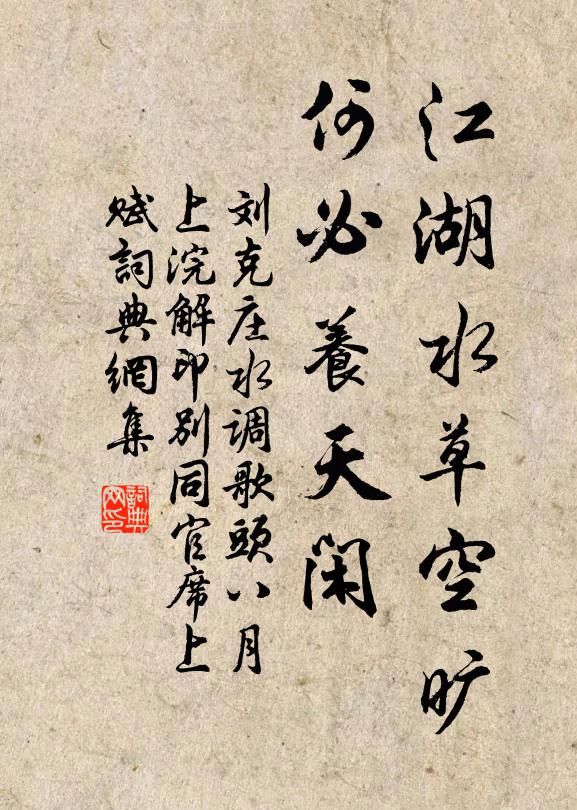 江湖水草空旷
何必養天闲
刘克庄水调歌頭八月
上浣解印别同官席上
赋詞典網集
詞典网印